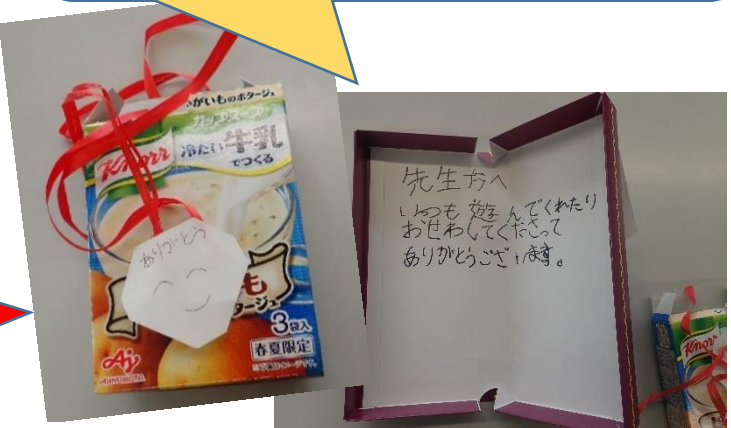 がいものポタージュ
カップスープ
Knorr
冷たい牛乳
でつくる
ありがとう
も
タージュ
3袋入
春夏限定
Aj
AJINOMOTO
先生方へ
いつも遊んでくれたり
お世わしてくださって
ありがとうございます。
Knorr